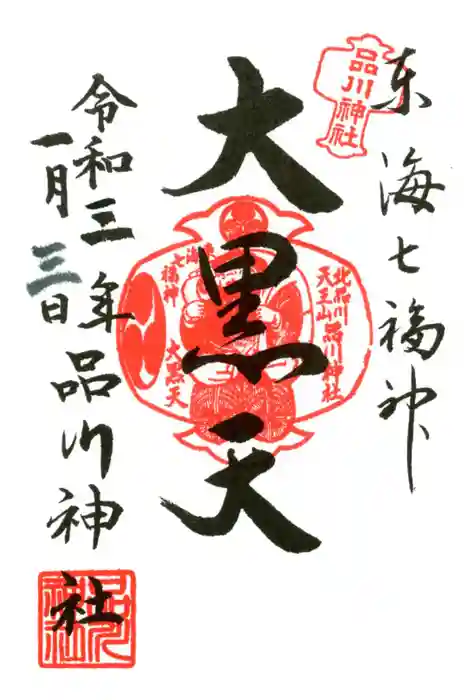 東海七福神
品川神社
大黒天
北品川
天王山
品川神社
東海
七福神
大黒天
令和三年
一月三日
品川神社